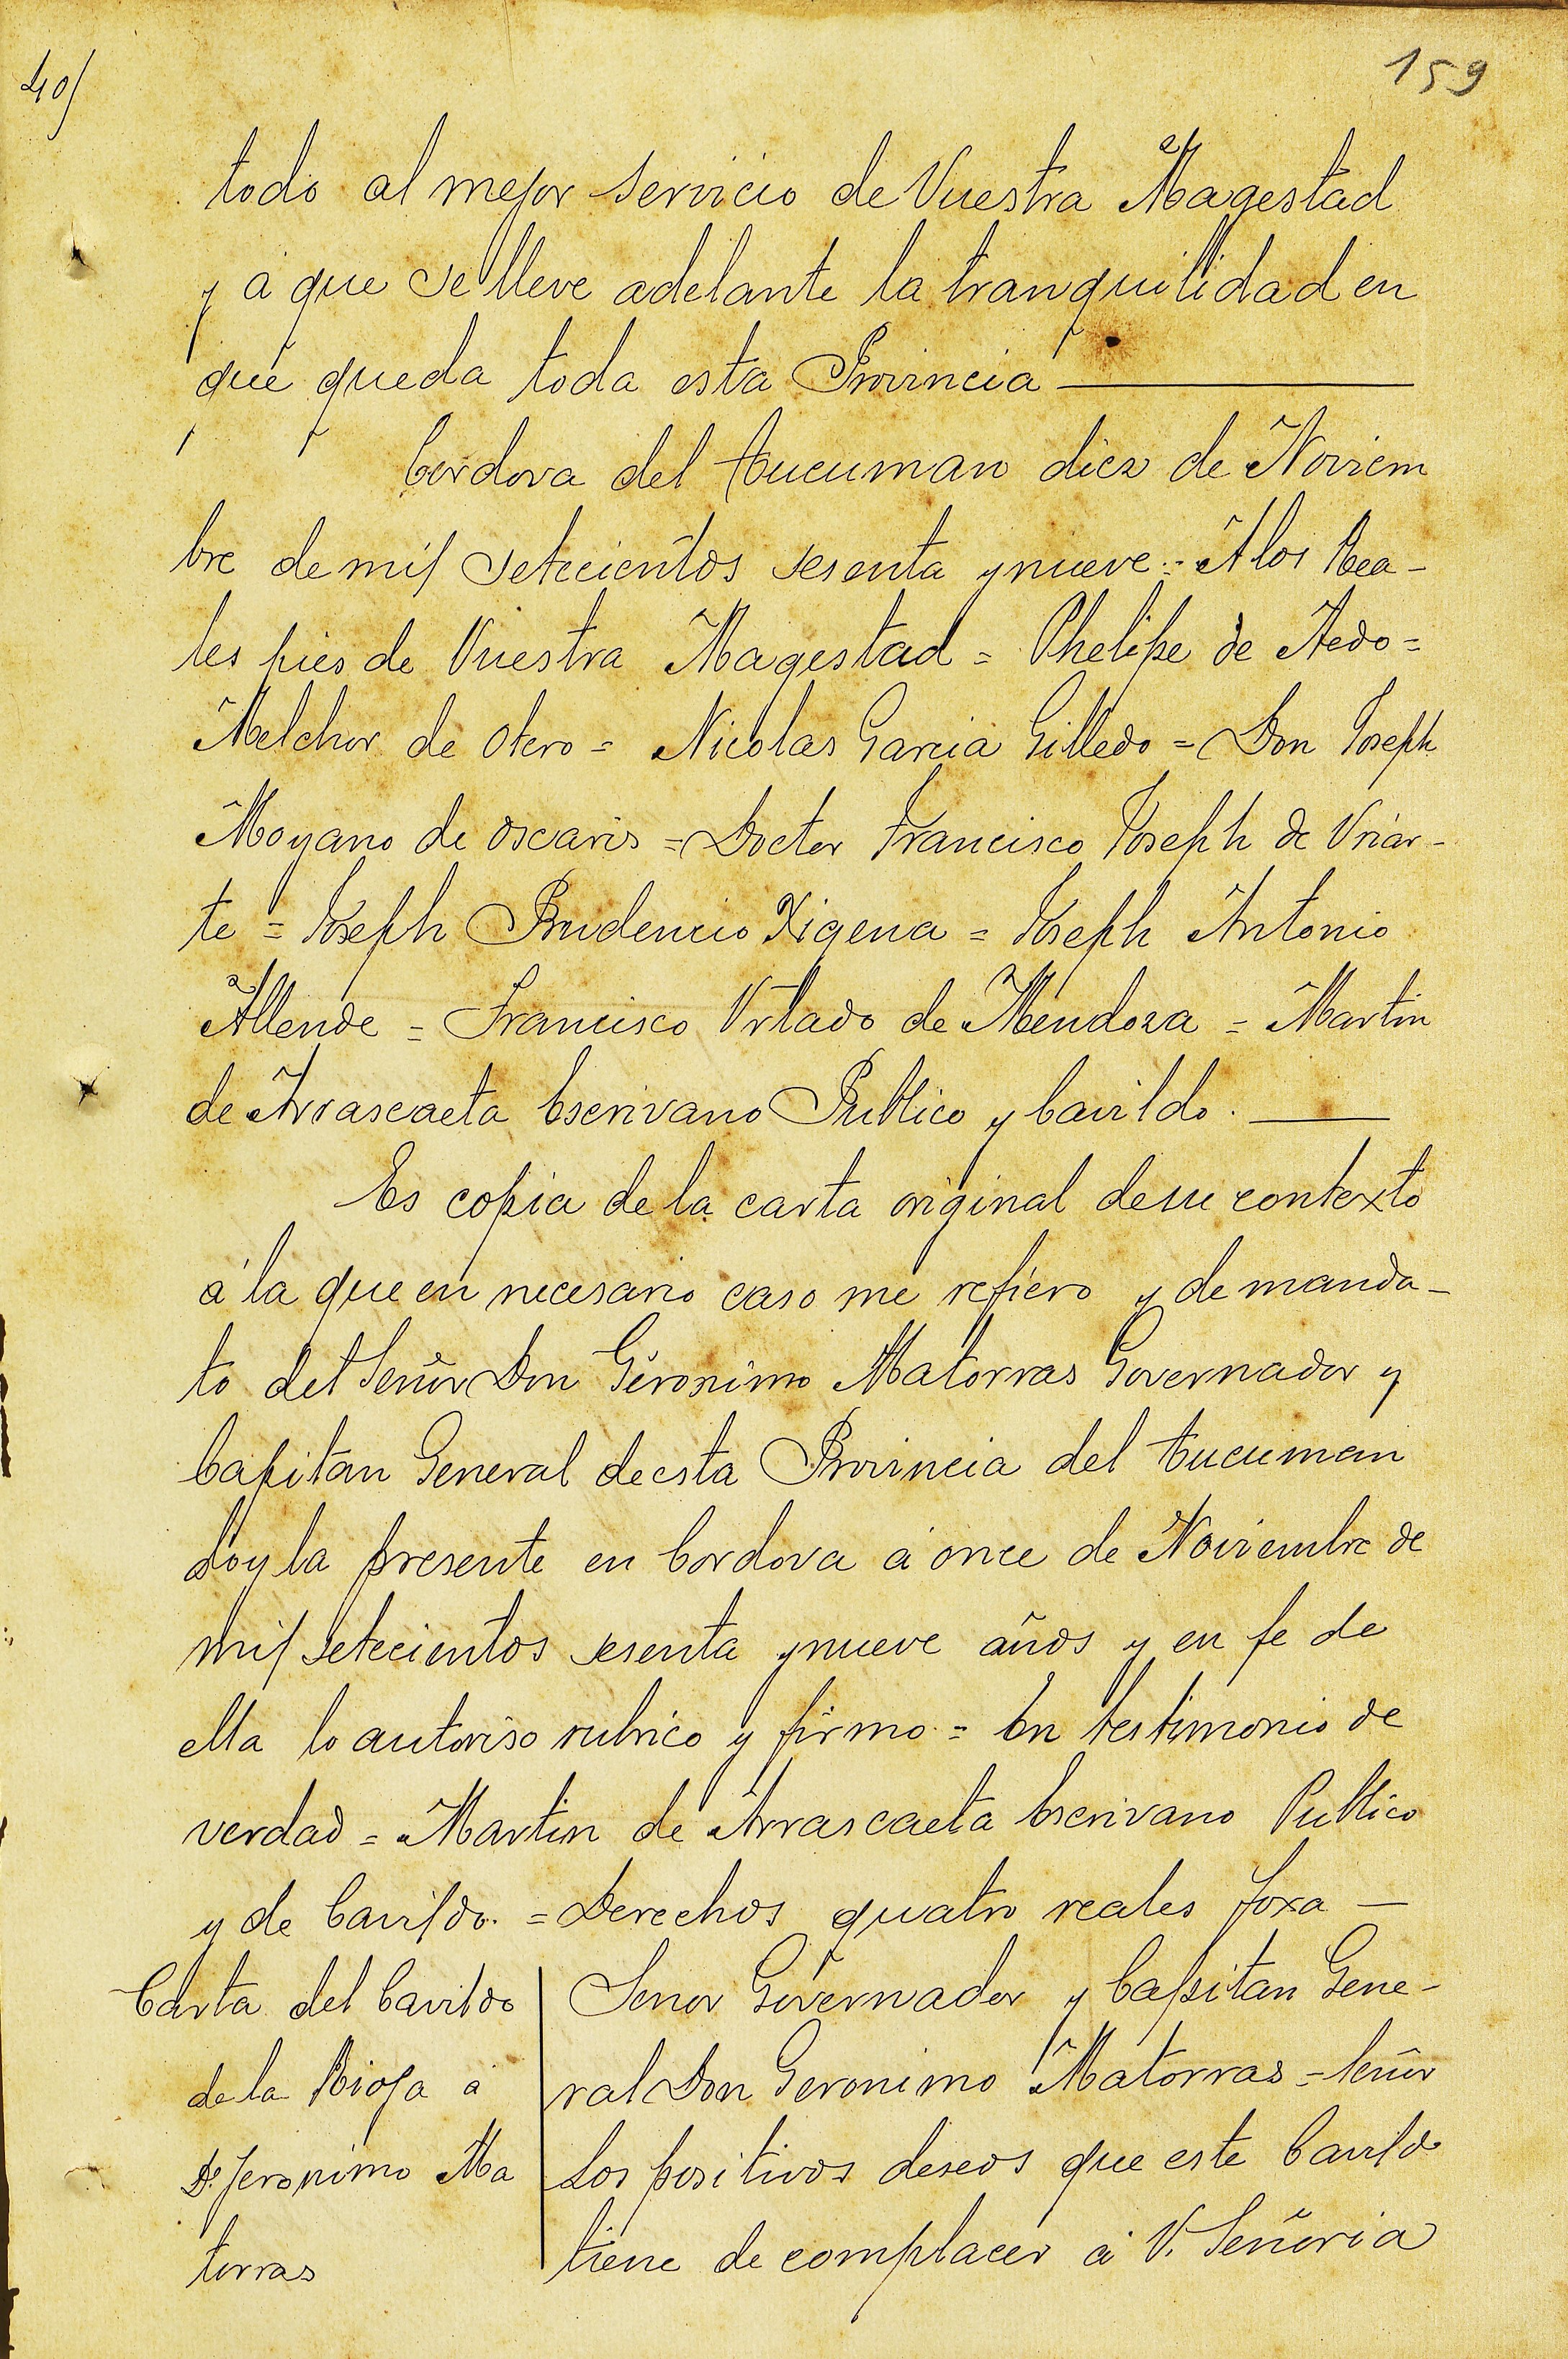 40/
159
todo al mejor servicio de Vuestra Magestad
y á que se lleve adelante la tranquilidad en
que queda toda esta Provincia
Cordova del Tucuman diez de Noviem
bre de mil setecientos sesenta y nueve = A los Rea-
les pies de Vuestra Magestad = Phelipe de Aedo =
Melchor de Otero = Nicolas Garcia Gilledo = Don Joseph
Moyano de Oscaris = Doctor Francisco Joseph de Vriar-
te = Joseph Prudencio Xigena = Joseph Antonio
Allende = Francisco Vrtado de Mendoza = Martin
de Arrascaeta Escrivano Publico y Cavildo.
Es copia de la carta original de su contexto
á la que en necesario caso me refiero y de manda-
to del Señor Don Geronimo Matorras Governador y
Capitan General de esta Provincia del Tucuman
doy la presente en Cordova á once de Noviembre de
mil setecientos sesenta y nueve años y en fe de
ella lo autoriso rubrico y firmo = En testimonio de
verdad = Martin de Arrascaeta Escrivano Publico
y de Cavildo. = Derechos quatro reales foxa
Carta del Cavildo
de la Rioja a
Dn Jeronimo Ma
torras
Señor Governador y Capitan Gene-
ral Don Geronimo Matorras = Señor
Los positivos deseos que este Cavildo
tiene de complacer á V. Señoria